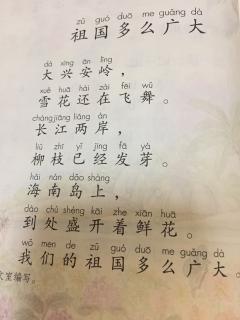 zǔ guó duō me guǎng dà
祖国多么广大
dà xīng ān lǐng
大兴安岭，
xuě huā hái zài fēi wǔ
雪花还在飞舞。
cháng jiāng liǎng àn
长江两岸，
liǔ zhī yǐ jīng fā yá
柳枝已经发芽。
hǎi nán dǎo shàng
海南岛上，
dào chù shèng kāi zhe xiān huā
到处盛开着鲜花。
wǒ men de zǔ guó duō me guǎng dà
我们的祖国多么广大。
室编写。